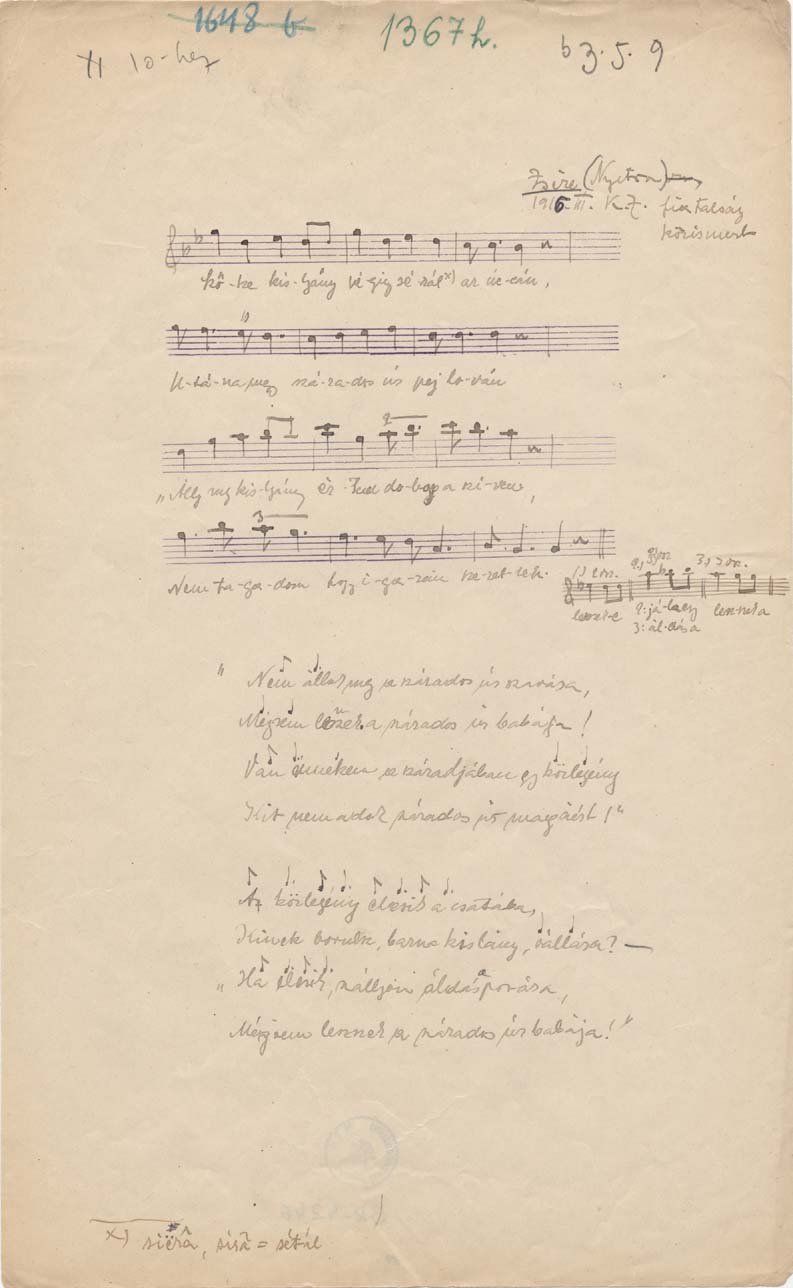 1648 b 1367h. b 3. 5. 9
XI 10-hez
Zsére (Nyitra)
1916. III. K.Z. fiatalság
közismert
Kő-ke kis-lyány vé-gig sé-tál x) az uc-cán,
1)
U-tá-na meg szá-za-dos úr pej lo-ván
2
"Állj meg kis-lyány do-bog a szi-vem,
3
Nem ta-ga-dom hogy i-ga-zán sze-ret-lek.
1) 2.) 3.)
2: já-
3: ál-dása lesz-nek a
" Nem állok meg a százados úr szavára,
Mégsem leszek a százados úr babája!
Van énnékem a századjában egy közlegény
Kit nem adok százados úr magáért!"
Az közlegény elesik a csatába,
Kinek borulsz, barna kislány, vállára? —
"Ha elesik, szálljon áldás porára,
Mégsem leszek a százados úr babája!"
x) sierâ, sirâ = sétál